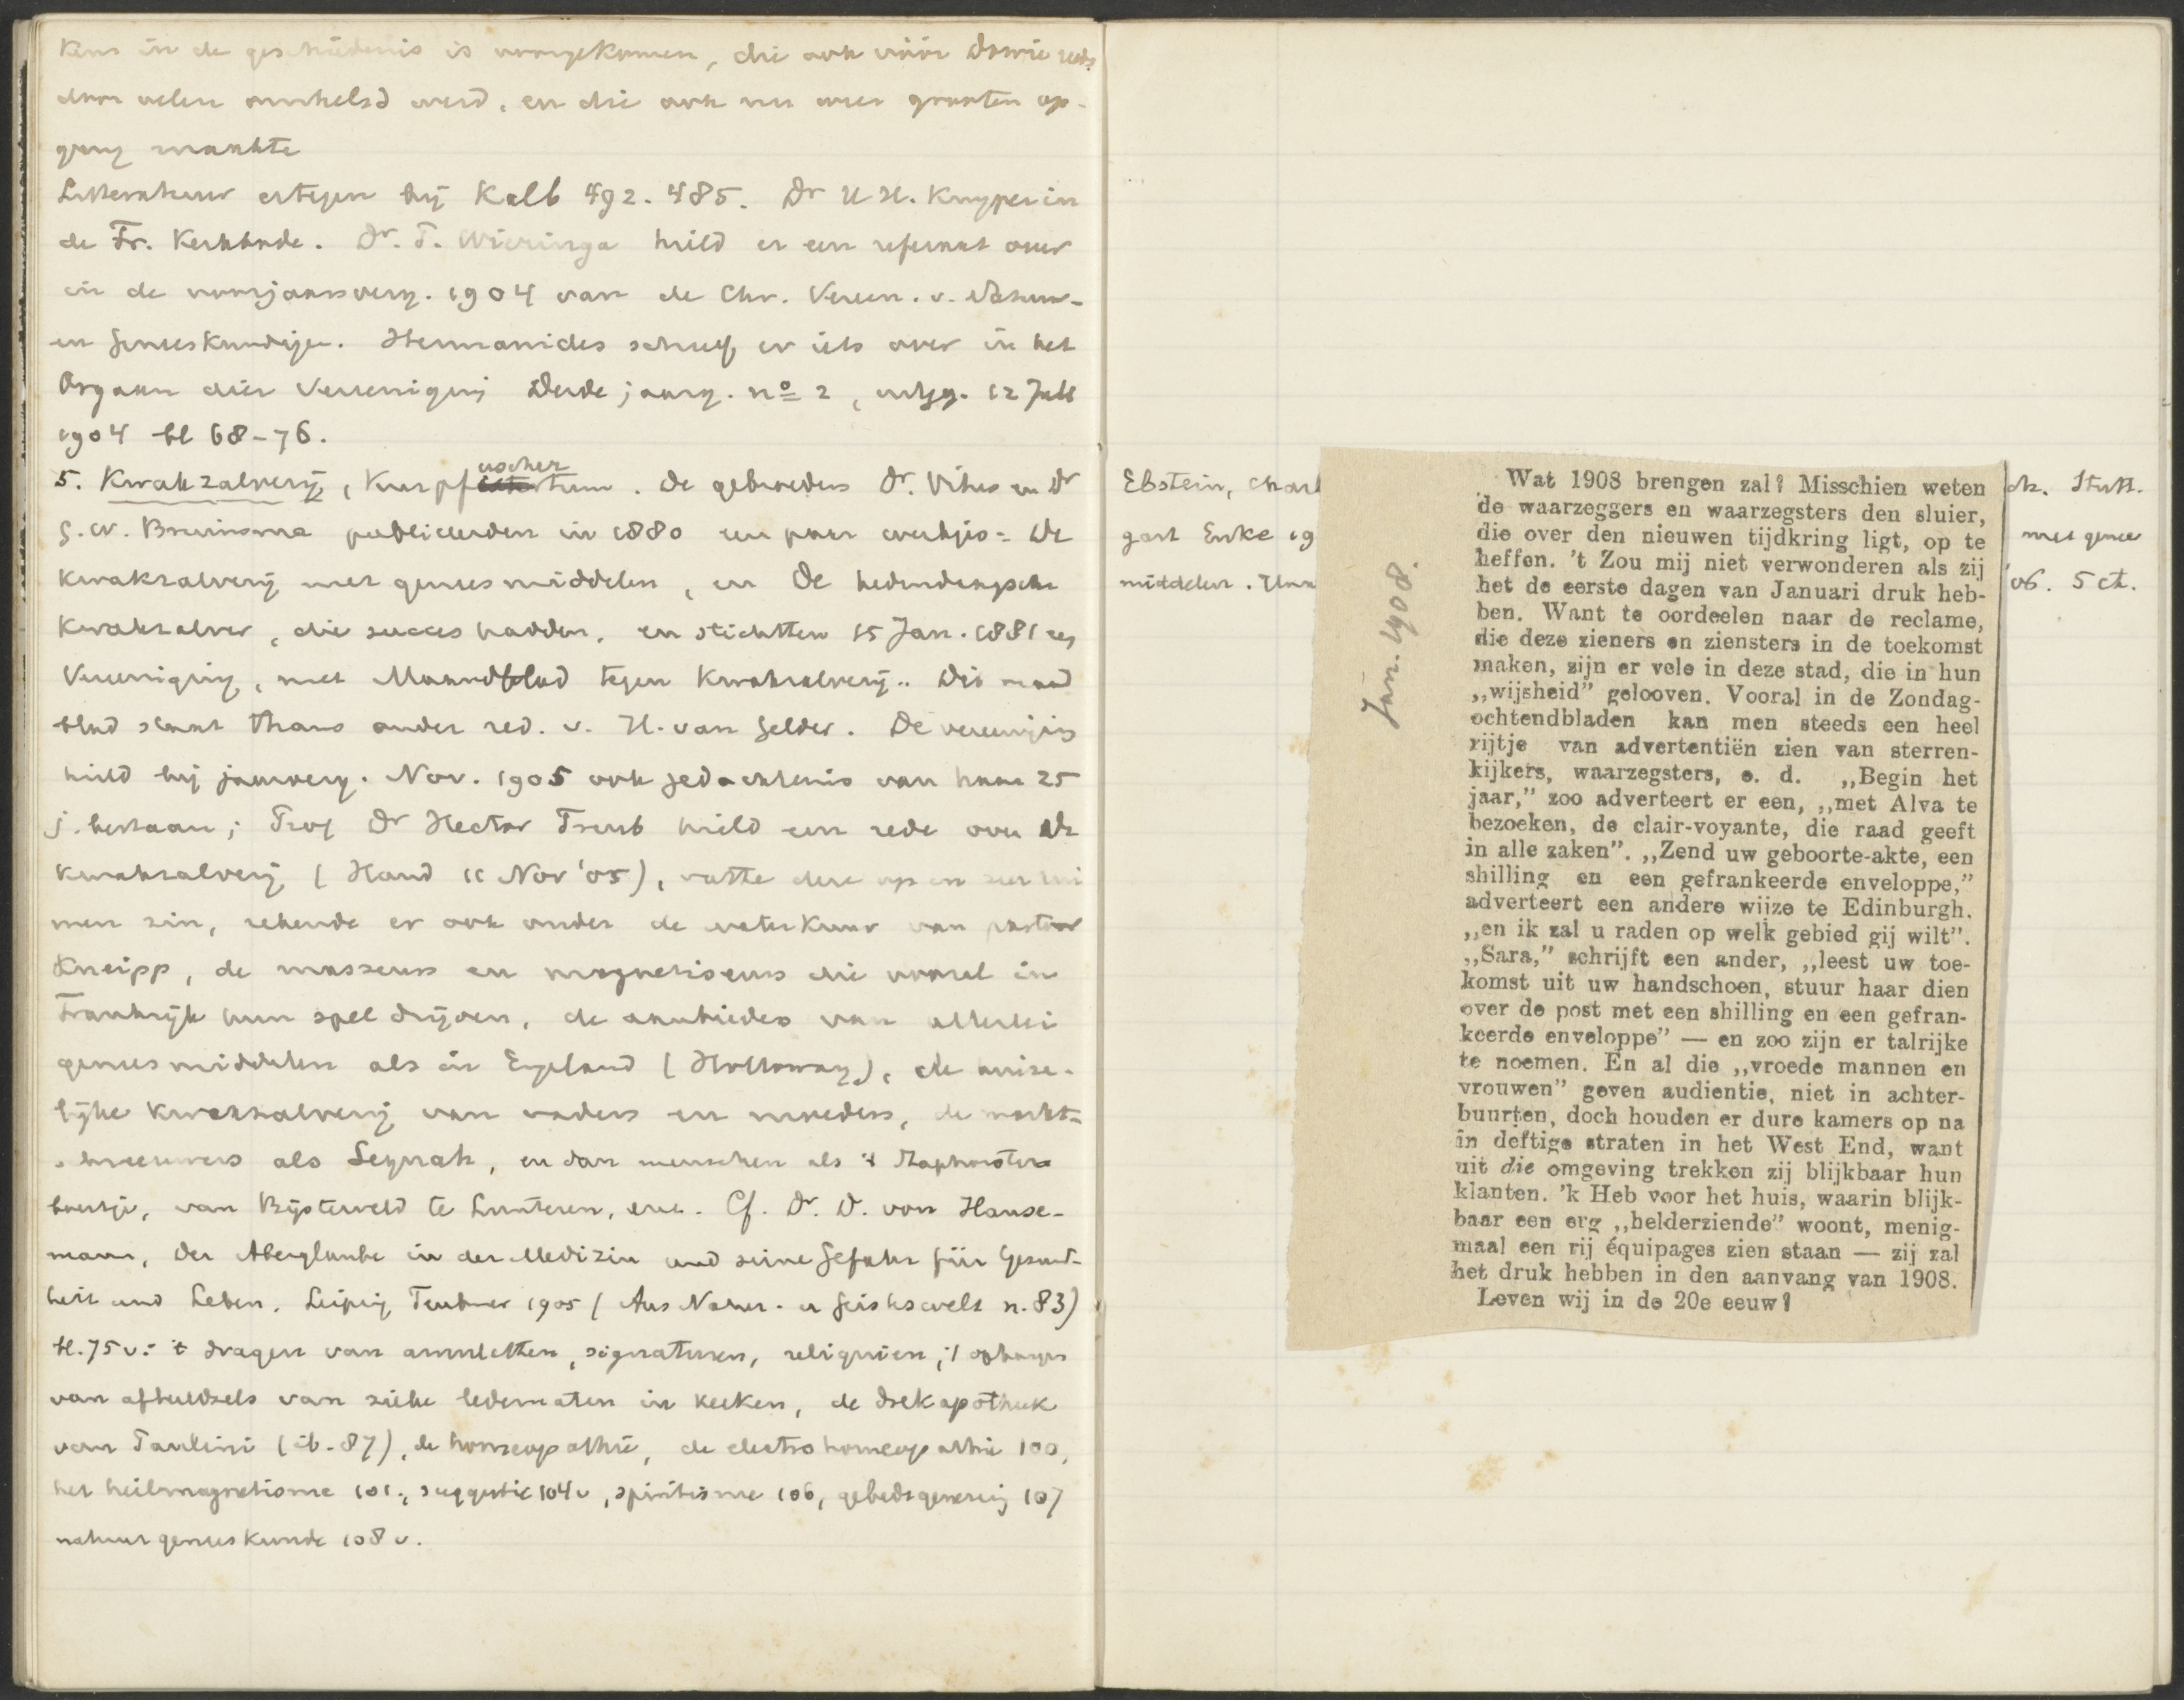 eens in de geschiedenis is voorgekomen, die ook vóór Dowie reeds
door velen omhelsd werd, en die ook nu weer grooten op-
gang maakte
Litteratuur ertegen bij Kalb 492. 485. Dr H. H. Kuyper in
de Fr. Kerkbode. Dr. T. Wieringa hield er een referaat over
in de voorjaarsverg. 1904 van de Chr. Vereen. v. Natuur-
en Geneeskundigen. Hermanides schreef er iets over in het
Orgaan dier Vereeniging Derde jaarg. no 2, uitgg. 12 Juli
1904 bl 68-76.
5. Kwakzalverij, Kurpfuschertum. De gebroeders Dr. Vitus en Dr
G. W. Bruinsma publiceerden in 1880 een paar werkjes: De
Kwakzalverij met geneesmiddelen, en De hedendaagsche
Kwakzalver, die succes hadden, en stichtten 15 Jan. 1881 een
Vereeniging, met Maandblad tegen Kwakzalverij. Dis maand
blad staat thans onder red. v. H. van Gelder. De vereeniging
hield bij jaarverg. Nov. 1905 ook gedachtenis van haar 25
j. bestaan; Prof Dr Hector Treub hield een rede over de
kwakzalverij (Hand 11 Nov '05), vatte deze op in zeer rui
men zin, rekende er ook onder de waterkuur van pastoor
Kneipp, de masseurs en magnetiseurs die vooral in
Frankrijk hun spel drijven, de aanbieders van allerlei
geneesmiddelen als in Engeland (Holloway), de huise-
lijke kwakzalverij van vaders en moeders, de markt-
schreeuwers als Sequah, en dan menschen als 't Staphorster
boertje, van Bijsterveld te Lunteren, enz. Cf. Dr. D. von Hanse-
mann, Der Aberglaube in der Medizin und seine Gefahr für Gesund-
heit und Leben. Leipzig Teubner 1905 (Aus Natur- u Geisteswelt n. 83)
bl. 75 v: 't dragen van amuletten, signaturen, reliquien, 't ophangen
van afbeeldsels van zieke ledematen in kerken, de drekapotheek
van Paulini (ib. 87), de homeopathie, de electrohomeopathie 100,
het heilmagnetisme 101, suggestie 104 v, spiritisme 106, gebedsgenezing 107
natuurgeneeskunde 108 v.
Ebstein, Charl
ch. Stutt.
gart Enke 19
met genees
middelen.
'06. 5 ct.
Jan. 1908.
Wat 1908 brengen zal? Misschien weten
de waarzeggers en waarzegsters den sluier,
die over den nieuwen tijdkring ligt, op te
heffen. 't Zou mij niet verwonderen als zij
het de eerste dagen van Januari druk heb-
ben. Want te oordeelen naar de reclame,
die deze zieners en ziensters in de toekomst
maken, zijn er vele in deze stad, die in hun
„wijsheid” gelooven. Vooral in de Zondag-
ochtendbladen kan men steeds een heel
rijtje van advertentiën zien van sterren-
kijkers, waarzegsters, e. d. „Begin het
jaar,” zoo adverteert er een, „met Alva te
bezoeken, de clair-voyante, die raad geeft
in alle zaken”. „Zend uw geboorte-akte, een
shilling en een gefrankeerde enveloppe,”
adverteert een andere wijze te Edinburgh,
„en ik zal u raden op welk gebied gij wilt”.
„Sara,” schrijft een ander, „leest uw toe-
komst uit uw handschoen, stuur haar dien
over de post met een shilling en een gefran-
keerde enveloppe” — en zoo zijn er talrijke
te noemen. En al die „vroede mannen en
vrouwen” geven audientie, niet in achter-
buurten, doch houden er dure kamers op na
in deftige straten in het West End, want
uit die omgeving trekken zij blijkbaar hun
klanten. 'k Heb voor het huis, waarin blijk-
baar een erg „helderziende” woont, menig-
maal een rij équipages zien staan — zij zal
het druk hebben in den aanvang van 1908.
Leven wij in de 20e eeuw?